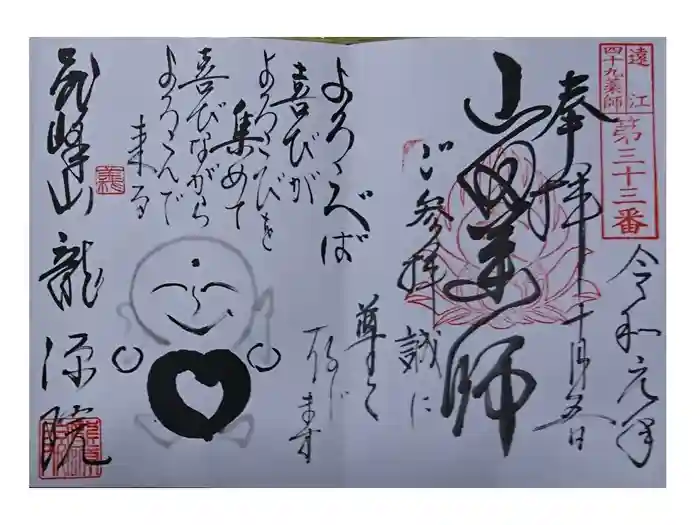 遠江
四十九薬師
第三十三番
令和元年
奉拝 十月五日
薬師
ご参拝誠に
尊く
存じます
よろこべば
喜びが
よろこびを
集めて
喜びながら
よろこんで
来る
龍源院